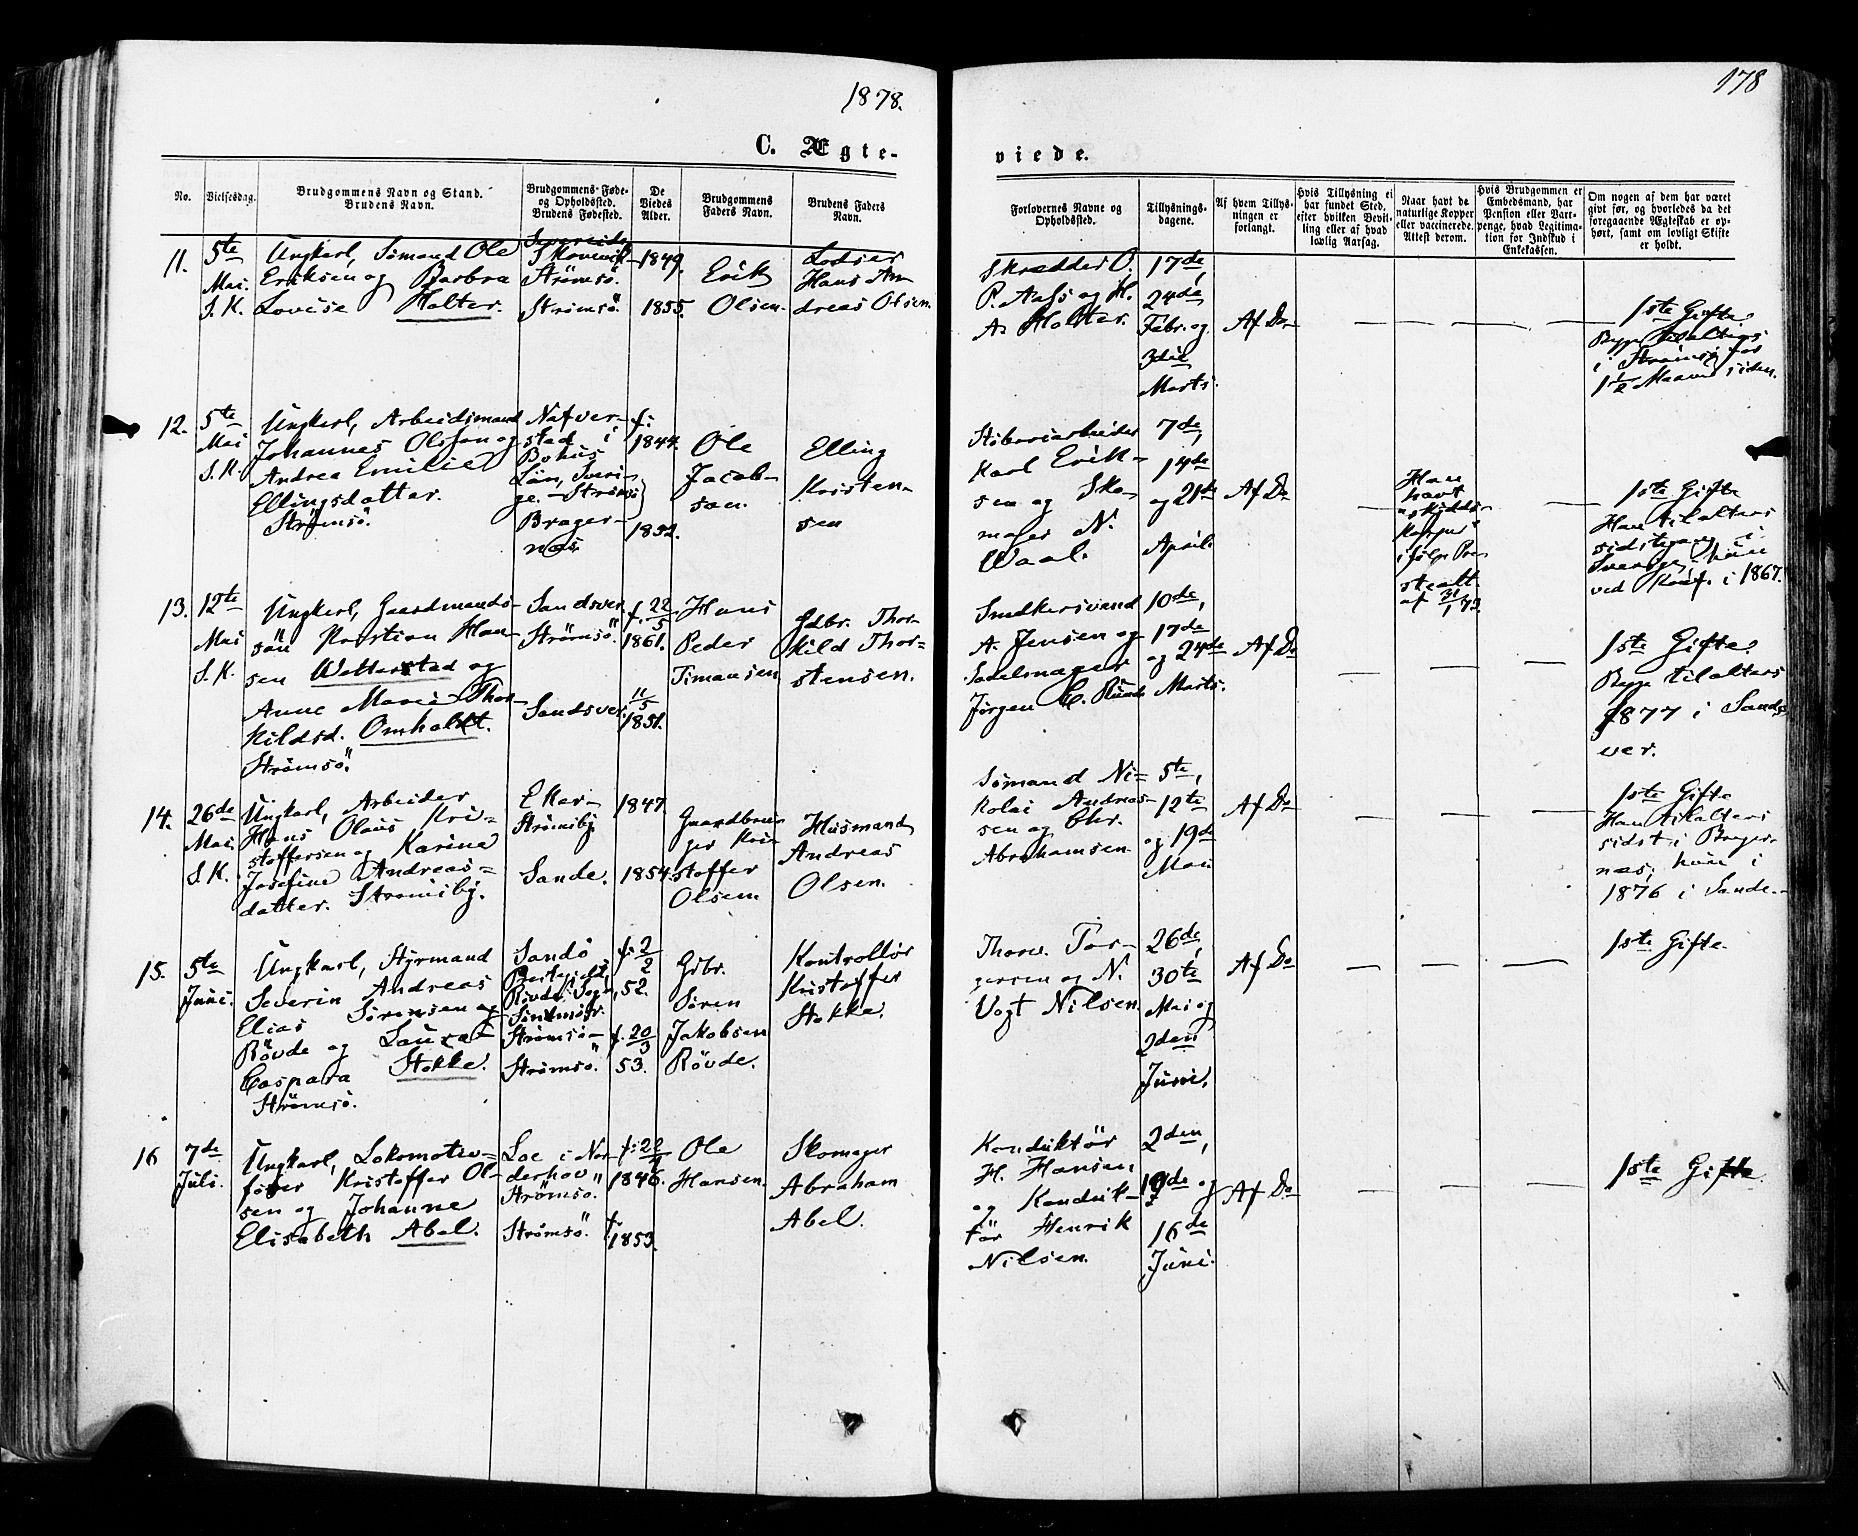 1878.
178
C. Ægte-
viede.
No.
Vielsesdag.
Brudgommens Navn og Stand.
Brudens Navn.
Brudgommens Føde-
og Opholdssted.
Brudens Fødested.
De
Viedes
Alder.
Brudgommens
Faders Navn.
Brudens Faders
Navn.
Forlovernes Navne og
Opholdssted.
Tillysnings-
dagene.
Af hvem Tillys-
ningen er
forlangt.
Hvis Tillysning ei
har fundet Sted,
efter hvilken Bevil-
ling eller af hvad
lovlig Aarsag.
Naar havt de
naturlige Kopper
eller vaccinerede.
Attest derom.
Hvis Brudgommen er
Embedsmand, har
Pension eller Vart-
penge, hvad Legitima-
tion for Indskud i
Enkekassen.
Om nogen af dem har været
givt før, og hvorledes da det
foregaaende Ægteskab er op-
hørt, samt om lovligt Skifte
er holdt.
11.
5te
Mai.
S. K.
Ungkarl, Sömand Ole
Eriksen og Barbra
Lovise Holter.
Strömsö.
Strömsö.
1849.
1855.
Erik
Olsen.
Lodser
Hans An
dreas Olsen.
Skrædder O.
P. Aass og H.
A. Holter.
17de,
24de
Febr. og
3die
Marts.
Af Do
1ste Gifte.
i Strömsö for
siden.
12.
5te
Mai
S. K.
Ungkarl, Arbeidsmand
Johannes Olsson og
Andrea Emilie
Ellingsdatter.
Strömsö.
Nafver-
stad i
Bohus
Län, Sveri-
ge. - Strömsö
Brager-
næs.
f:
1844.
1852.
Ole
Jacob-
son.
Elling
Kristen-
sen
Karl Erik-
sen og Sko-
mager N.
Waal.
7de,
14de
og 21de
April.
Af Do
Han
havt
Kopper
af 31/1 73.
1ste Gifte
Han tilalters
sidstgang i
Sverige, hun
ved Konf. i 1867.
13.
12te
Mai
S. K.
Ungkarl, Gaardmands-
sön Kristian Han-
sen Wetterstad og
Anne Marie Thor-
kildsd. Omholdt.
Strömsö.
Sandsver.
Strömsö.
Sandsver.
f. 22/5
1861.
11/5
1851.
Hans
Peder
Timansen.
Gdbr. Thor-
kild Thor-
stensen.
A. Jensen og
Sadelmager
Jörgen C.
10de,
17de
og 24de
Marts.
Af Do
1ste Gifte.
Begge tilalters
1877 i Sands-
ver.
14.
26de
Mai.
S. K.
Ungkarl, Arbeider
Hans Olaus Kri-
stoffersen og Karine
Josefine Andreas-
datter. Strömsby.
Eker-
Strömsby.
Sande.
1847.
1854.
Gaardbru-
ger Kri-
stoffer
Olsen.
Husmand
Andreas
Olsen.
Sömand Ni-
kolai Andreas-
sen og Chr.
Abrahamsen.
5te,
12te
og 19de
Mai.
Af Do
1ste Gifte
Han tilalters
sidst i Brager-
næs, hun i
1876 i Sande.
15.
5te
Juni.
Ungkarl, Styrmand
Severin Andreas
Elias Sörensen
Rövde og Laura
Caspara Stokke.
Strömsö.
Sandö
Rövde Sogn,
Söndmör.
Strömsö-
Strömsö.
f: 2/2
52.
f. 20/3
53.
Gbr.
Sören
Jakobsen
Rövde.
Kontrollör
Kristoffer
Stokke.
Thorv. Tor-
gersen og N.
Vogt Nilsen.
26de,
30te
Mai og
2den
Juni.
Af Do
1ste Gifte.
16
7de
Juli.
Ungkarl, Lokomotiv-
förer Kristoffer Ol-
sen og Johanne
Elisabeth Abel.
Loe i Nor-
derhov
Strömsö.
Strömsö.
1846.
f.
1853.
Ole
Hansen.
Skomager
Abraham
Abel.
Konduktör
H. Hansen
og Konduk-
tör Henrik
Nilsen.
2den,
og
16de
Juni.
Af Do
1ste Gifte.